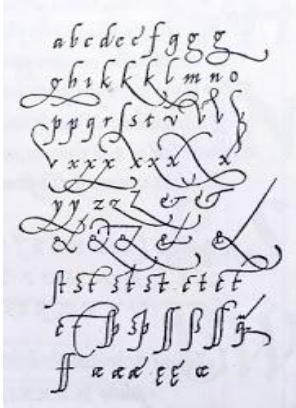 a b c d e e f g g g
g h i k k k l m n o
p p q r ſ s t v v v
v x x x x x x x
y y z z z & &
& & & & &
ſt st st st et et
et sp ſſ ß ſſ
ff æ æ æ ę ę œ